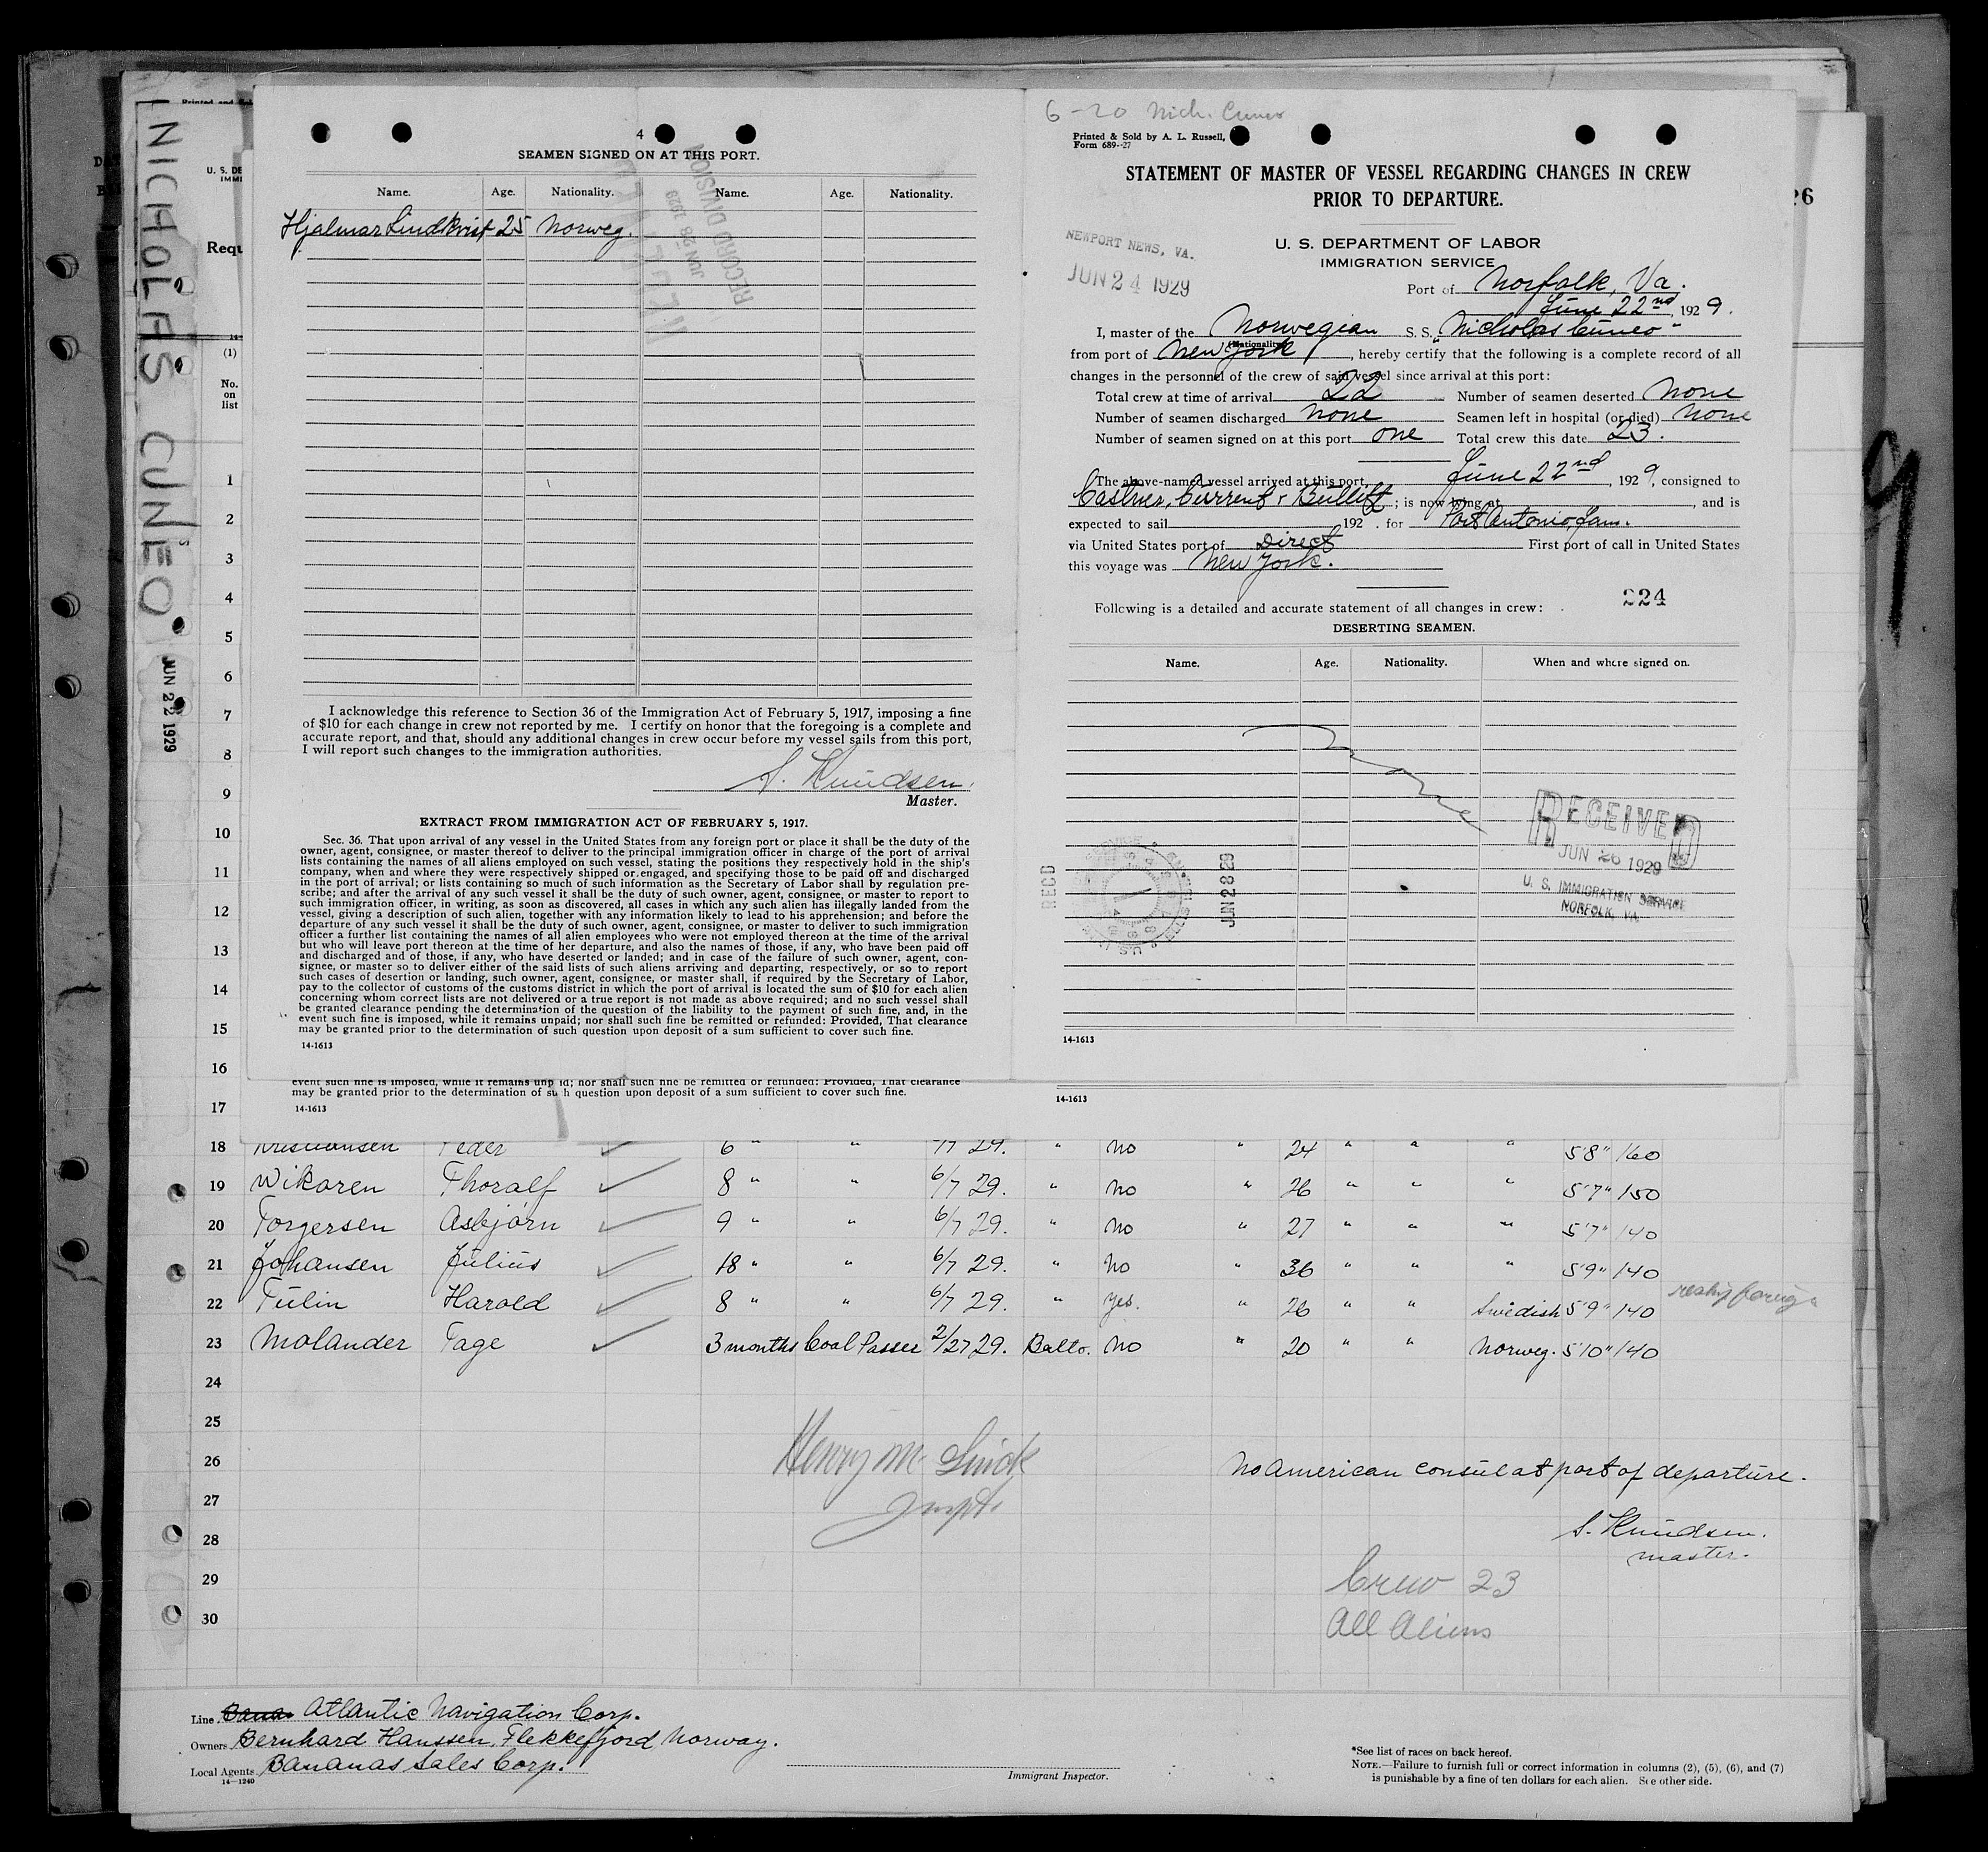 NICHOLAS CUNEO
JUN 22 1929
Printed and
U. S. DE
IMMI
Requ
(1)
No.
on
list
26
4
SEAMEN SIGNED ON AT THIS PORT.
Name. Age. Nationality. Name. Age. Nationality.
Hjalmar Lindkvist 25 Norweg.
RECORD DIVISION
JUN 28 1929
I acknowledge this reference to Section 36 of the Immigration Act of February 5, 1917, imposing a fine
of $10 for each change in crew not reported by me. I certify on honor that the foregoing is a complete and
accurate report, and that, should any additional changes in crew occur before my vessel sails from this port,
I will report such changes to the immigration authorities.
S. Knudsen.
Master.
EXTRACT FROM IMMIGRATION ACT OF FEBRUARY 5, 1917.
Sec. 36. That upon arrival of any vessel in the United States from any foreign port or place it shall be the duty of the
owner, agent, consignee, or master thereof to deliver to the principal immigration officer in charge of the port of arrival
lists containing the names of all aliens employed on such vessel, stating the positions they respectively hold in the ship's
company, when and where they were respectively shipped or engaged, and specifying those to be paid off and discharged
in the port of arrival; or lists containing so much of such information as the Secretary of Labor shall by regulation pre-
scribe; and after the arrival of any such vessel it shall be the duty of such owner, agent, consignee, or master to report to
such immigration officer, in writing, as soon as discovered, all cases in which any such alien has illegally landed from the
vessel, giving a description of such alien, together with any information likely to lead to his apprehension; and before the
departure of any such vessel it shall be the duty of such owner, agent, consignee, or master to deliver to such immigration
officer a further list containing the names of all alien employees who were not employed thereon at the time of the arrival
but who will leave port thereon at the time of her departure, and also the names of those, if any, who have been paid off
and discharged and of those, if any, who have deserted or landed; and in case of the failure of such owner, agent, con-
signee, or master so to deliver either of the said lists of such aliens arriving and departing, respectively, or so to report
such cases of desertion or landing, such owner, agent, consignee, or master shall, if required by the Secretary of Labor,
pay to the collector of customs of the customs district in which the port of arrival is located the sum of $10 for each alien
concerning whom correct lists are not delivered or a true report is not made as above required; and no such vessel shall
be granted clearance pending the determination of the question of the liability to the payment of such fine, and, in the
event such fine is imposed, while it remains unpaid; nor shall such fine be remitted or refunded: Provided, That clearance
may be granted prior to the determination of such question upon deposit of a sum sufficient to cover such fine.
14-1613
6-20 Nich. Cuneo
Printed & Sold by A. L. Russell,
Form 689--27
STATEMENT OF MASTER OF VESSEL REGARDING CHANGES IN CREW
PRIOR TO DEPARTURE.
U. S. DEPARTMENT OF LABOR
IMMIGRATION SERVICE
NEWPORT NEWS, VA.
JUN 24 1929
Port of Norfolk, Va.
June 22nd, 1929.
I, master of the Norwegian S. S. "Nicholas Cuneo"
(Nationality)
from port of New York, hereby certify that the following is a complete record of all
changes in the personnel of the crew of said vessel since arrival at this port:
Total crew at time of arrival 22 Number of seamen deserted None
Number of seamen discharged None Seamen left in hospital (or died) None
Number of seamen signed on at this port one Total crew this date 23.
The above-named vessel arrived at this port, June 22nd, 1929, consigned to
Castner, Curren & Bullitt; is now lying at , and is
expected to sail 192 . for Port Antonio, Jam.
via United States port of Direct First port of call in United States
this voyage was New York.
224
Following is a detailed and accurate statement of all changes in crew:
DESERTING SEAMEN.
Name. Age. Nationality. When and where signed on.
None
RECEIVED
JUN 26 1929
U. S. IMMIGRATION SERVICE
NORFOLK, VA.
RECD
JUN 28 29
14-1613
event such fine is imposed, while it remains unp id; nor shall such fine be remitted or refunded: Provided, That clearance
may be granted prior to the determination of su h question upon deposit of a sum sufficient to cover such fine.
14-1613
14-1613
1
2
3
4
5
6
7
8
9
10
11
12
13
14
15
16
17
18 Kristiansen Peder 6 " " 6/7 29. " No " 24 " " " 5'8" 160
19 Wikaren Thoralf 8 " " 6/7 29. " No " 26 " " " 5'7" 150
20 Torgersen Asbjørn 9 " " 6/7 29. " No " 27 " " " 5'7" 140
21 Johansen Julius 18 " " 6/7 29. " No " 36 " " " 5'9" 140
22 Tulin Harold 8 " " 6/7 29. " Yes. " 26 " " Swedish 5'9" 140
23 Molander Tage 3 months Coal Passer 2/27 29. Balto. No " 20 " " Norweg. 5'10" 140
24
25
26
27
28
29
30
Henry M.
No American consul at port of departure.
S. Knudsen.
master.
Crew 23
All Aliens
Line Atlantic Navigation Corp.
Owners Bernhard Hanssen, Flekkefjord Norway.
Local Agents Bananas Sales Corp.
14—1240
Immigrant Inspector.
*See list of races on back hereof.
NOTE.—Failure to furnish full or correct information in columns (2), (5), (6), and (7)
is punishable by a fine of ten dollars for each alien. See other side.